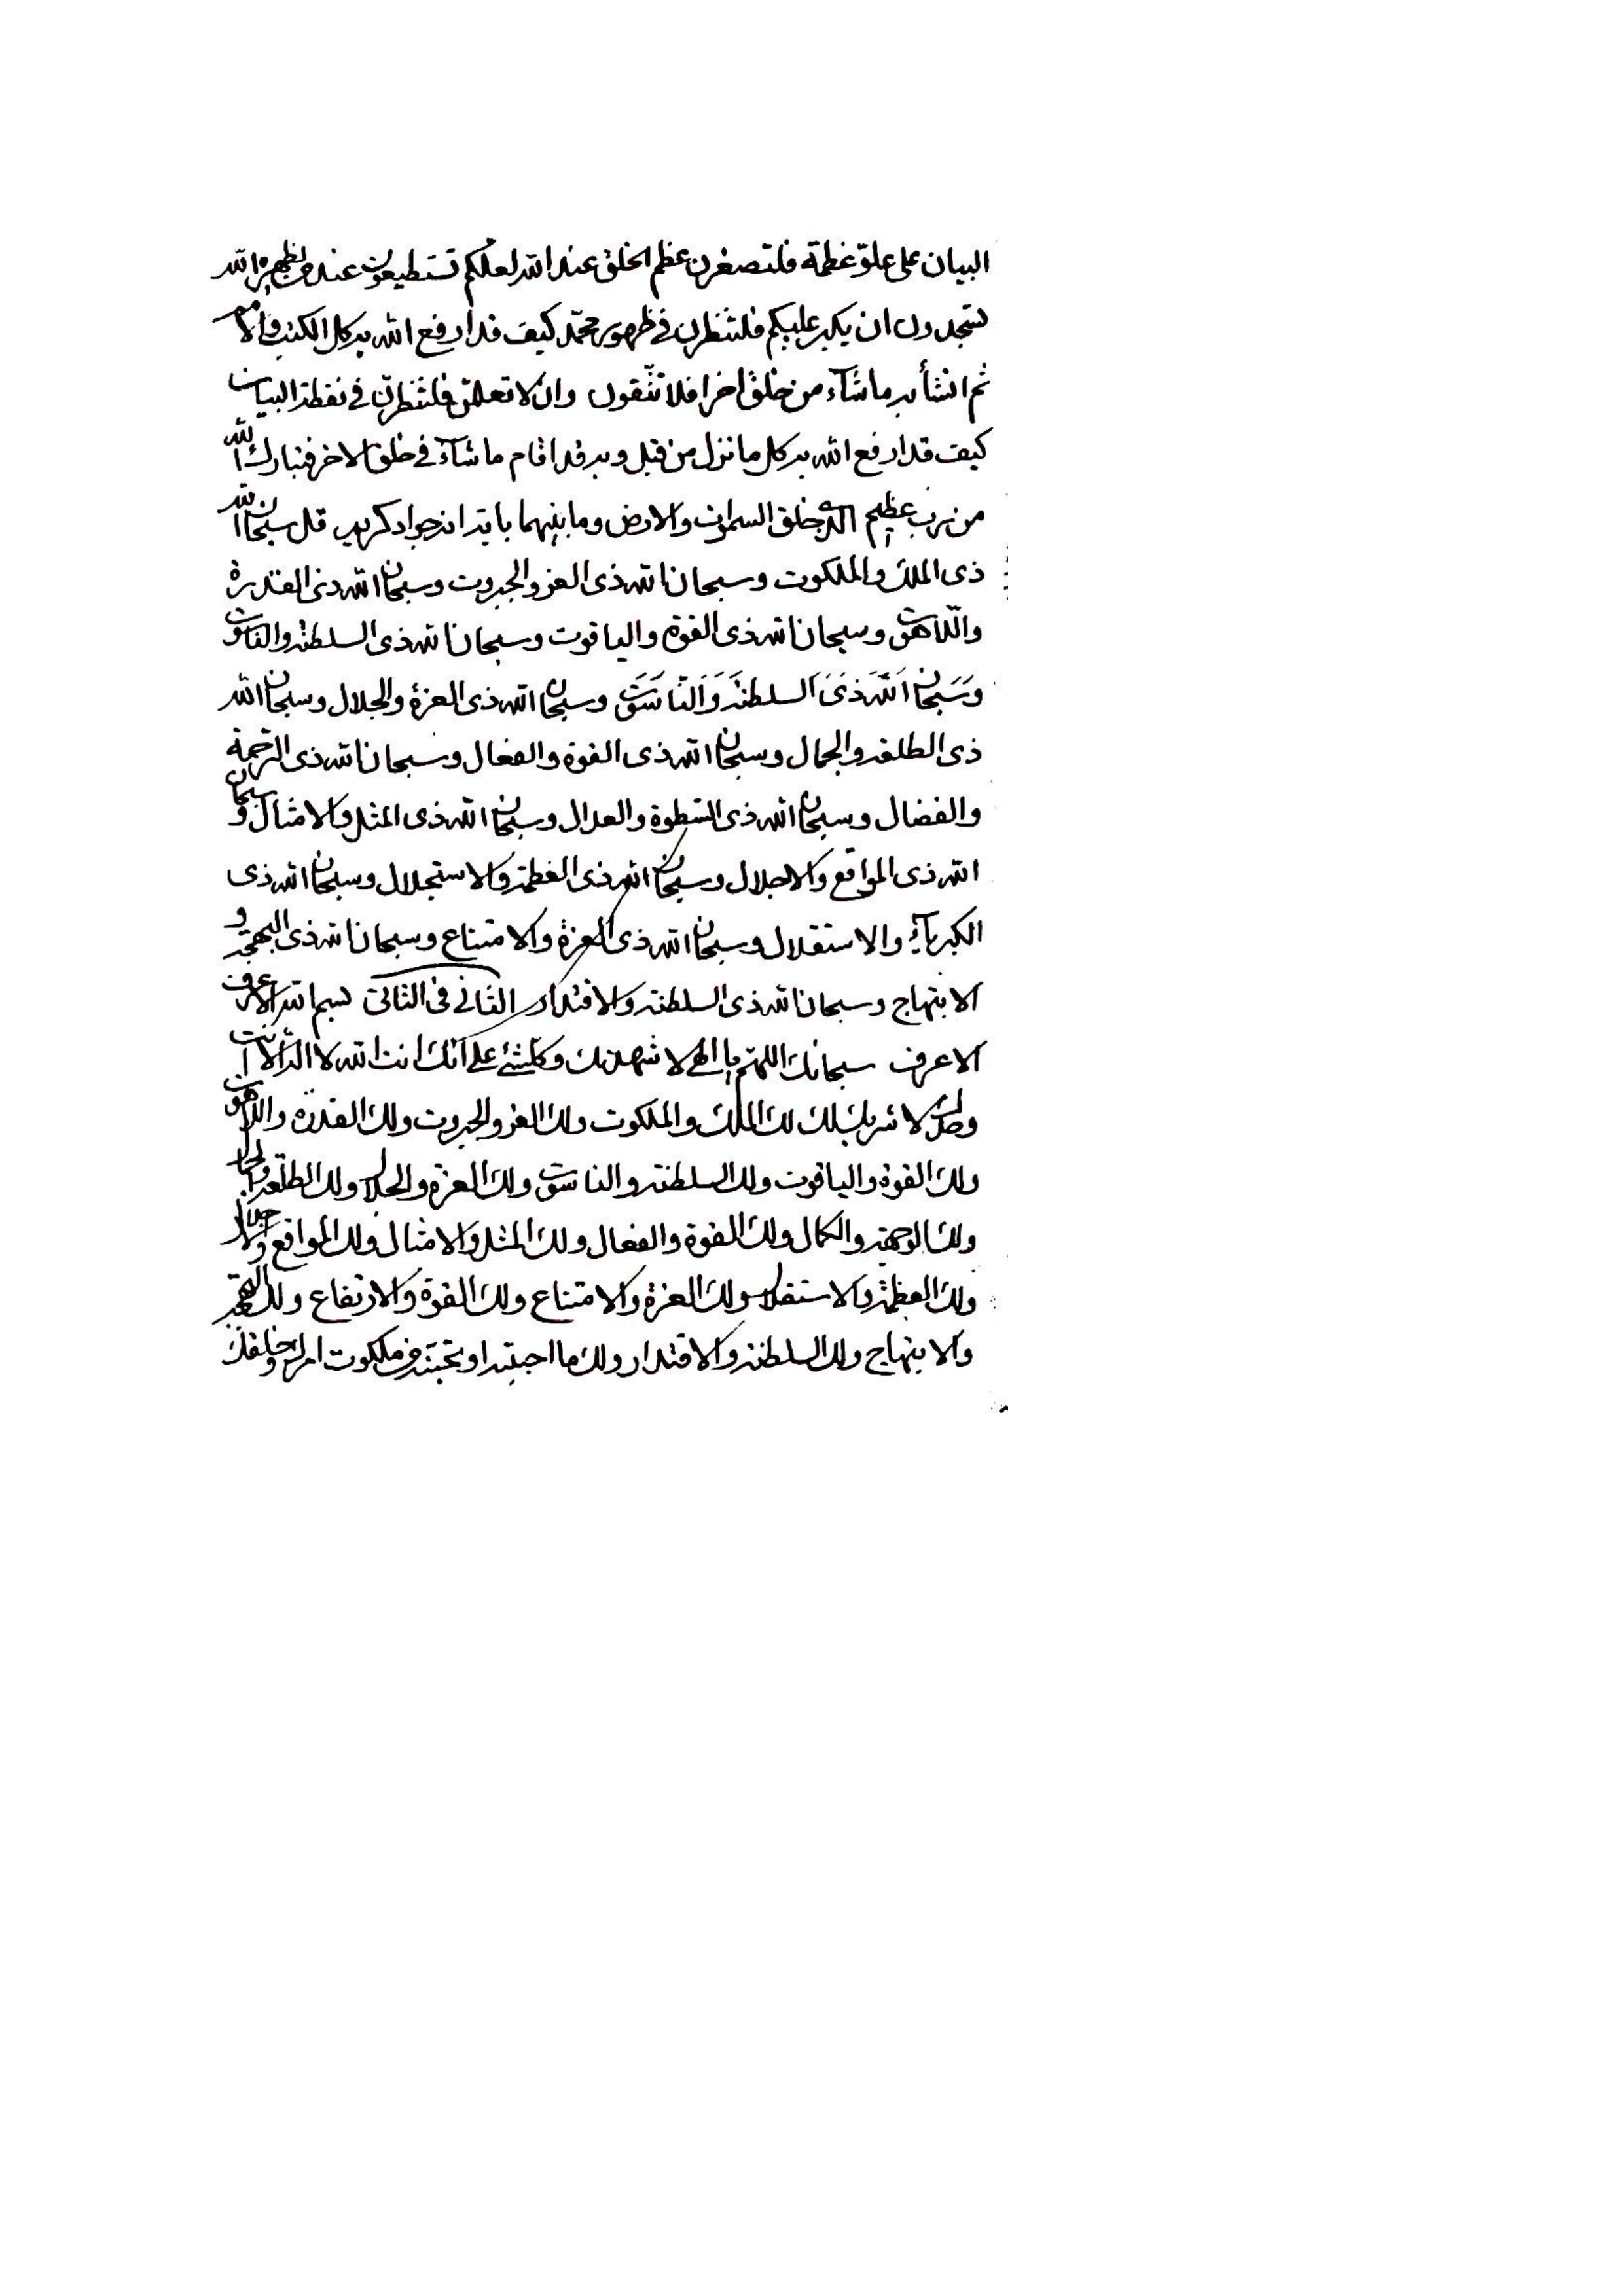 البيان على علوّ عظمة فلتصغرن عظم الخلق عند الله لعلكم تستطيعون عند من يظهره الله
تسجدون ان يكبر عليكم فلتنظرن في ظهور محمّد كيف قد ارفع الله به كل الكتب والامم
ثم انشأ به ما شآء من خلق اخر افلا تتّقون وان لا تعلمّن فلتنظرنّ في نقطة البيان
كيف قد ارفع الله به كل ما نزل من قبل وبه قد اقام ما شآء في خلق الاخر فتبارك الله
من رب عظيم الذي خلق السموات والارض وما بينهما بايته انه جواد كريم قل سبحان الله
ذى الملك والملكوت وسبحان الله ذى العز والجبروت وسبحان الله ذى القدرة
واللّاهوت وسبحان الله ذى القوة والياقوت وسبحان الله ذى السلطنة والناسوت
وسبحان الله ذى السلطنة والناسوت وسبحان الله ذى العزة والجلال وسبحان الله
ذى الطلعة والجمال وسبحان الله ذى القوة والفعال وسبحان الله ذى الرّحمة
والفضال وسبحان الله ذى السّطوة والعدال وسبحان الله ذى المثل والامثال وسبحان
الله ذى المواقع والاجلال وسبحان الله ذى العظمة والاستجلال وسبحان الله ذى
الكبريآء والاستقلال وسبحان الله ذى العزة والامتناع وسبحان الله ذى البهجة و
الابتهاج وسبحان الله ذى السلطنة والاقتدار الثاني في الثاني بسم الله الاعرف
الاعرف سبحانك اللهمّ يا الهي لاشهدنك وكلشئ على انك انت الله لا اله الا انت
وحدك لا شريك لك لك الملك والملكوت ولك العز والجبروت ولك القدرة واللاهوت
ولك القوة والياقوت ولك السلطنة والناسوت ولك العزة والجلال ولك الطلعة والجمال
ولك الوجهة والكمال ولك القوة والفعال ولك المثل والامثال ولك المواقع والاجلال
ولك العظمة والاستقلال ولك العزة والامتناع ولك القوة والارتفاع ولك البهجة
والابتهاج ولك السلطنة والاقتدار ولك ما احببته او تحبنه في ملكوت امرك وخلقك